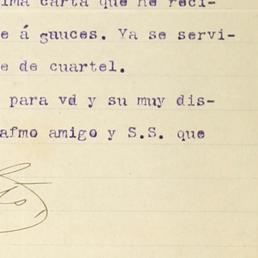 ima carta que he reci-
e á gauces. Ya se servi-
e de cuartel.
para vd y su muy dis-
afmo amigo y S.S. que